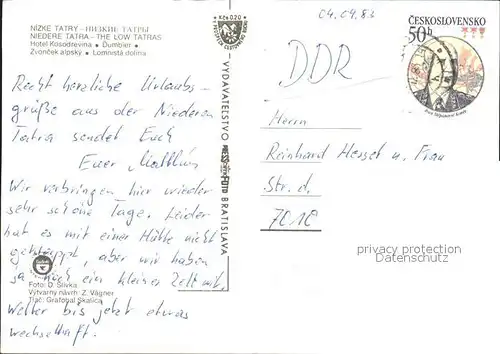 NÍZKE TATRY - НИЗКИЕ ТАТРЫ
NIEDERE TATRA - THE LOW TATRAS
Hotel Kosodrevina • Ďumbier •
Zvonček alpský • Lomnistá dolina
Recht herzliche Urlaubs-
grüße aus der Niederen
Tatra sendet Euch
Euer
Wir verbringen hier wieder
sehr schöne Tage. Leider
hat es mit einer Hütte nicht
geklappt, aber wir haben
ja noch ein kleines Zelt mit,
Wetter bis jetzt etwas
wechselhaft.
Foto: D. Slivka
Výtvarný návrh: Z. Vágner
Tlač: Grafobal Skalica
Kčs 0,20
VYDAVATEĽSTVO PRESSFOTO BRATISLAVA
04.04.83
ČESKOSLOVENSKO
50 h
DDR
Herrn
Reinhard Hessel u. Frau
Str. d.
7010
privacy protection
Datenschutz